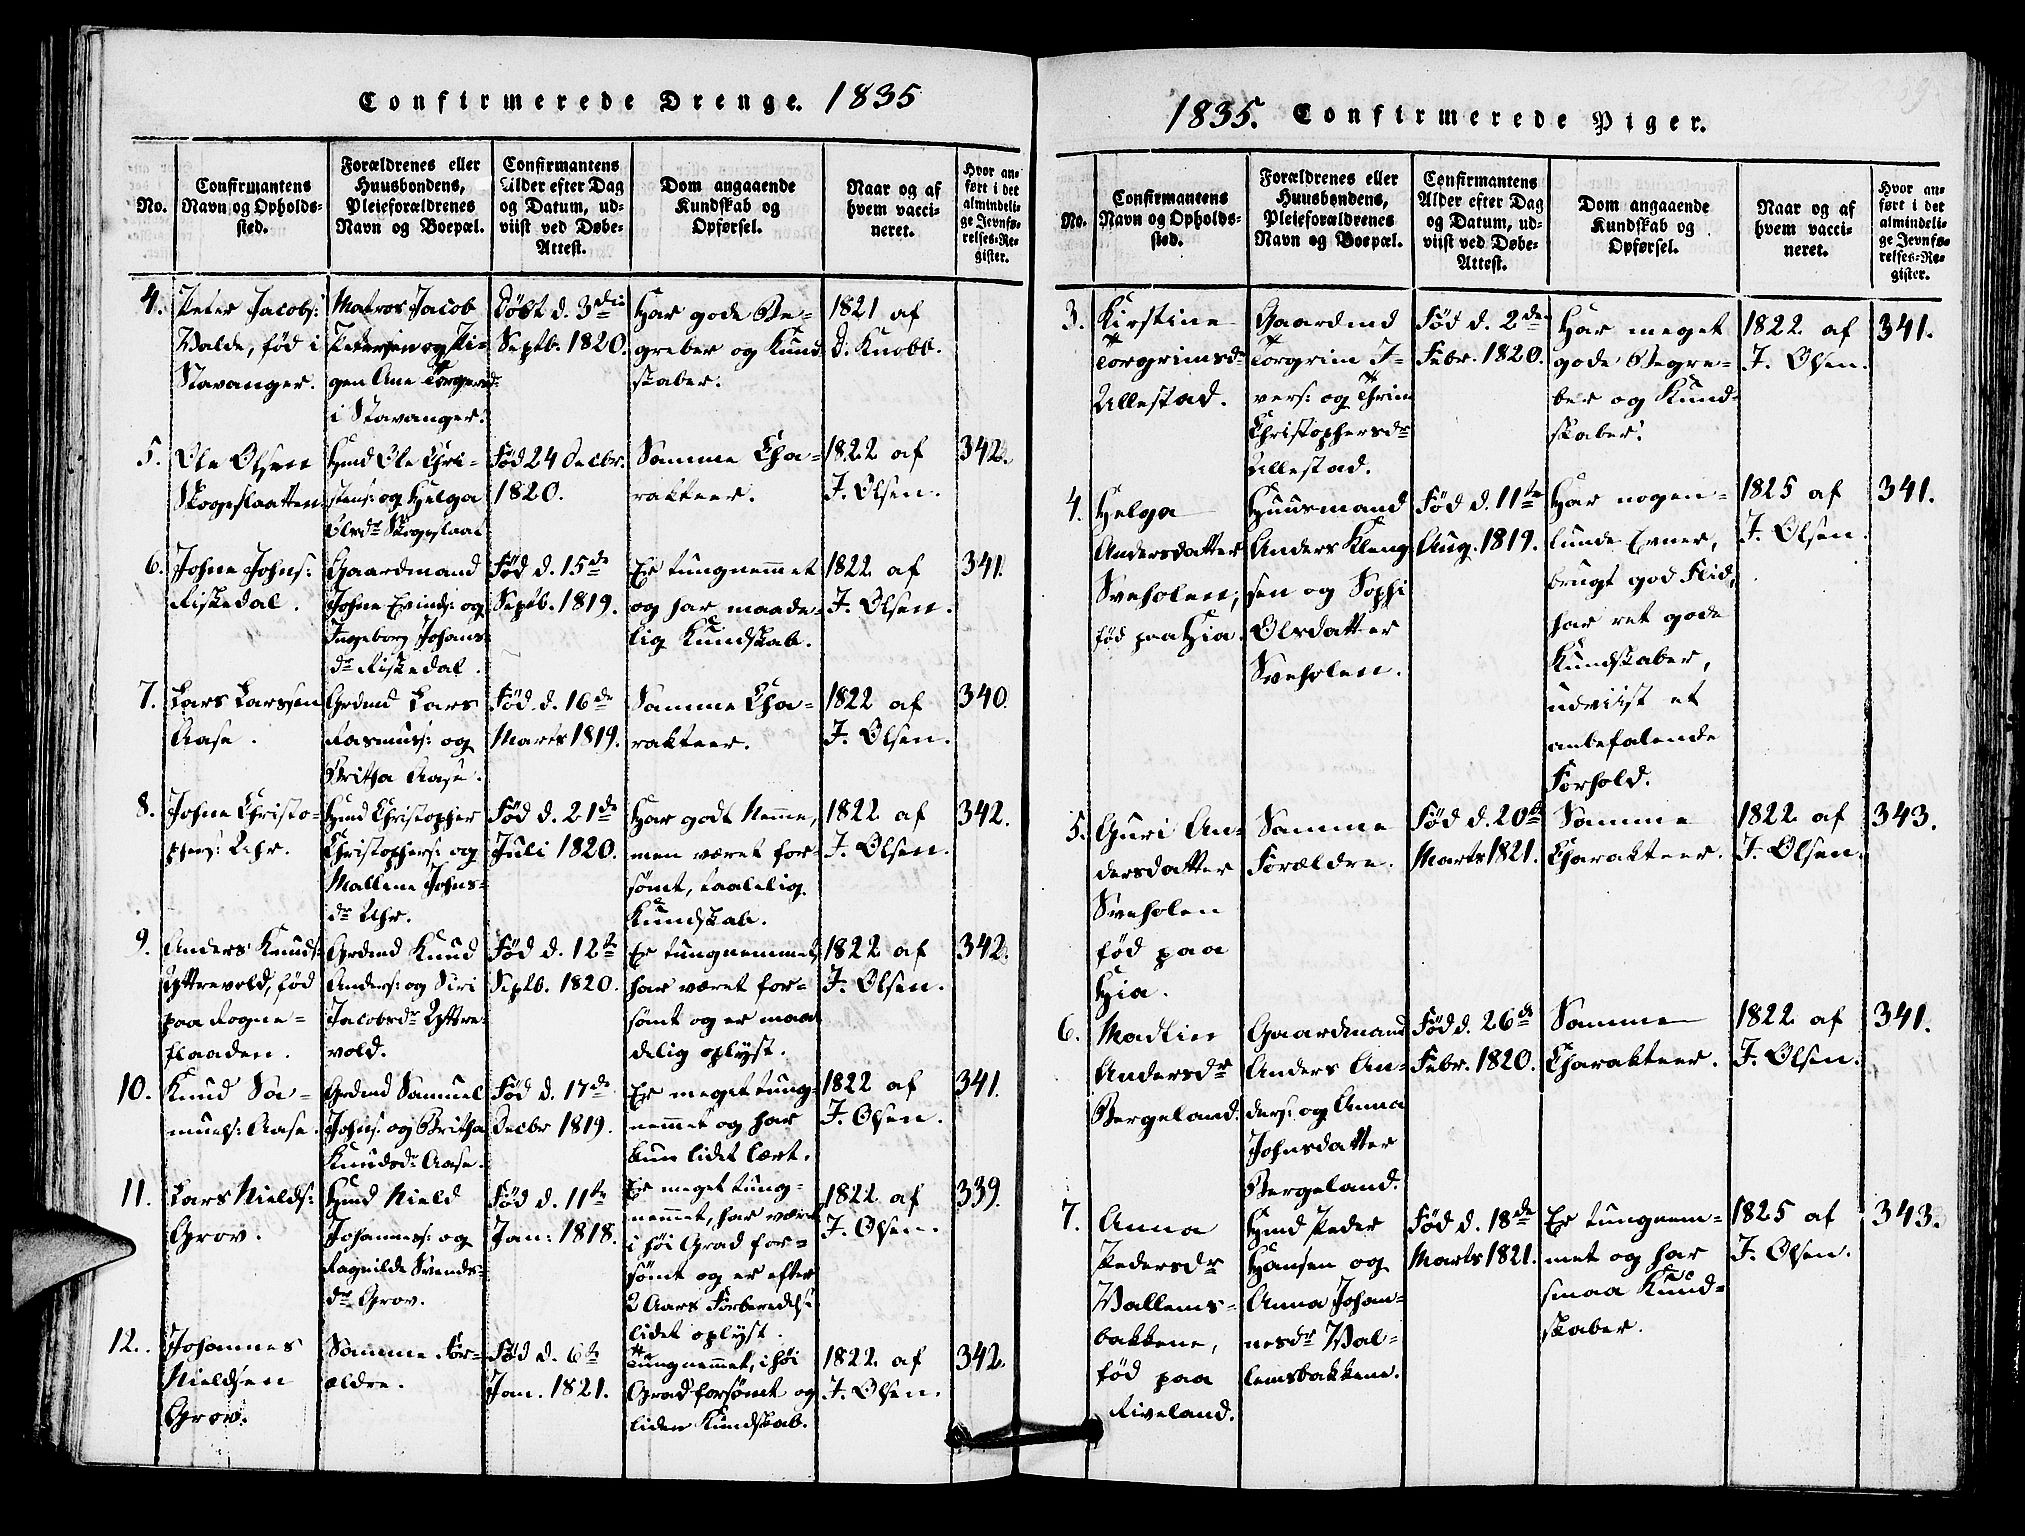 Confirmerede Drenge. 1835
No.
Confirmantens
Navn og Opholds-
sted.
Forældrenes eller
Huusbondens,
Pleieforældrenes
Navn og Boepæl.
Confirmantens
Alder efter Dag
og Datum, ud-
viist ved Døbe-
Attest.
Dom angaaende
Kundskab og
Opførsel.
Naar og af
hvem vacci-
neret.
Hvor an-
ført i det
almindeli-
ge Jevnfø-
relses-Re-
gister.
4.
Peter Jacobs:
Valde, fød i
Stavanger.
Matros Jacob
Petersen og Pi-
gen Ane Torgersd:
i Stavanger.
Døbt d. 3die
Septb. 1820.
Har gode Be-
greber og Kund
skaber.
1821 af
D. Knobb.
5.
Ole Olsen
Skogeslaatten
Hmd Ole Chri-
stens: og Helga
Olsdr Skogeslaat
Fød 24 Decbr.
1820.
Samme Cha-
rakteer.
1822 af
J. Olsen.
342.
6.
Johne Johns:
Riskedal.
Gaardmand
Johne Evinds: og
Ingeborg Johans-
dr Riskedal.
Fød d. 15de
Septb. 1819.
Er tungnemmet
og har maade-
lig Kundskab.
1822 af
J. Olsen.
341.
7.
Lars Larssen
Aase.
Grdmd Lars
Rasmuss: og
Britha Aase.
Fød d. 16de
Marts 1819.
Samme Cha-
rakteer.
1822 af
J. Olsen.
340.
8.
Johne Christo-
phers: Uhr.
Hmd Christopher
Christophers: og
Mallene Johns-
dr Uhr.
Fød d. 21de
Juli 1820.
Har godt Nemme,
men været for-
sømt, taalelig
Kundskab.
1822 af
J. Olsen.
342.
9.
Anders Knuds:
Yttrevold, fød
paa Rogne-
flaaden.
Grdmd Knud
Anders: og Siri
Jacobsdr Yttre-
vold.
Fød d. 12te
Septb. 1820.
Er tungnemmet,
har været for-
sømt og er maa
delig oplyst.
1822 af
J. Olsen.
342.
10.
Knud Sa-
muels: Aase.
Grdmd Samuel
Johns: og Britha
Knudsdr Aase.
Fød d. 17de
Decbr 1819.
Er meget tung-
nemmet og har
kun lidet lært.
1822 af
J. Olsen.
341.
11.
Lars Nields:
Grov.
Hmd Nield
Johanness: og
Ragnilde Svends-
dr Grov.
Fød d. 11te
Jan: 1818.
Er meget tung-
nemmet, har været
i høi Grad for-
sømt og er efter
2 Aars Forberedelse
lidet oplyst.
1822 af
J. Olsen.
339.
12.
Johannes
Nieldsen
Grov.
Samme For-
ældre.
Fød d. 6te
Jan. 1821.
Tungnemmet, i høi
Grad forsømt og
liden Kundskab.
1822 af
J. Olsen.
342.
1835. Confirmerede Piger.
No.
Confirmantens
Navn og Opholds-
sted.
Forældrenes eller
Huusbondens,
Pleieforældrenes
Navn og Boepæl.
Confirmantens
Alder efter Dag
og Datum, ud-
viist ved Døbe-
Attest.
Dom angaaende
Kundskab og
Opførsel.
Naar og af
hvem vacci-
neret.
Hvor an-
ført i det
almindeli-
ge Jevnfø-
relses-Re-
gister.
3.
Kirstine
Torgrimsdr
Ullestad.
Gaardmd
Torgrim I-
vers: og Thrine
Christophersdr
Ullestad.
Fød d. 2den
Febr. 1820.
Har meget
gode Begre-
ber og Kund-
skaber.
1822 af
J. Olsen.
341.
4.
Helga
Andersdatter
Sveholen,
fød paa Hia.
Huusmand
Anders Kleng
sen og Sophi
Olsdatter
Sveholen.
Fød d. 11te
Aug. 1819.
Har nogen-
lunde Evner,
brugt god Flid,
har ret gode
Kundskaber,
udviist et
anbefalende
Forhold.
1825 af
J. Olsen.
341.
5.
Guri An-
dersdatter
Sveholen
fød paa
Hia.
Samme
Forældre.
Fød d. 20de
Marts 1821.
Samme
Charakteer.
1822 af
J. Olsen.
343.
6.
Madlin
Andersdr
Bergeland.
Gaardmand
Anders An-
ders: og Anna
Johnsdatter
Bergeland.
Fød d. 26de
Febr. 1820.
Samme
Charakteer.
1822 af
J. Olsen.
341.
7.
Anna
Pedersdr
Vallems-
bakkene,
fød paa
Riveland.
Hmd Peder
Hansen og
Anna Johan-
nesdr Val-
lemsbakkene.
Fød d. 18de
Marts 1821.
Er tungnem-
met og har
smaa Kund-
skaber.
1825 af
J. Olsen.
343.